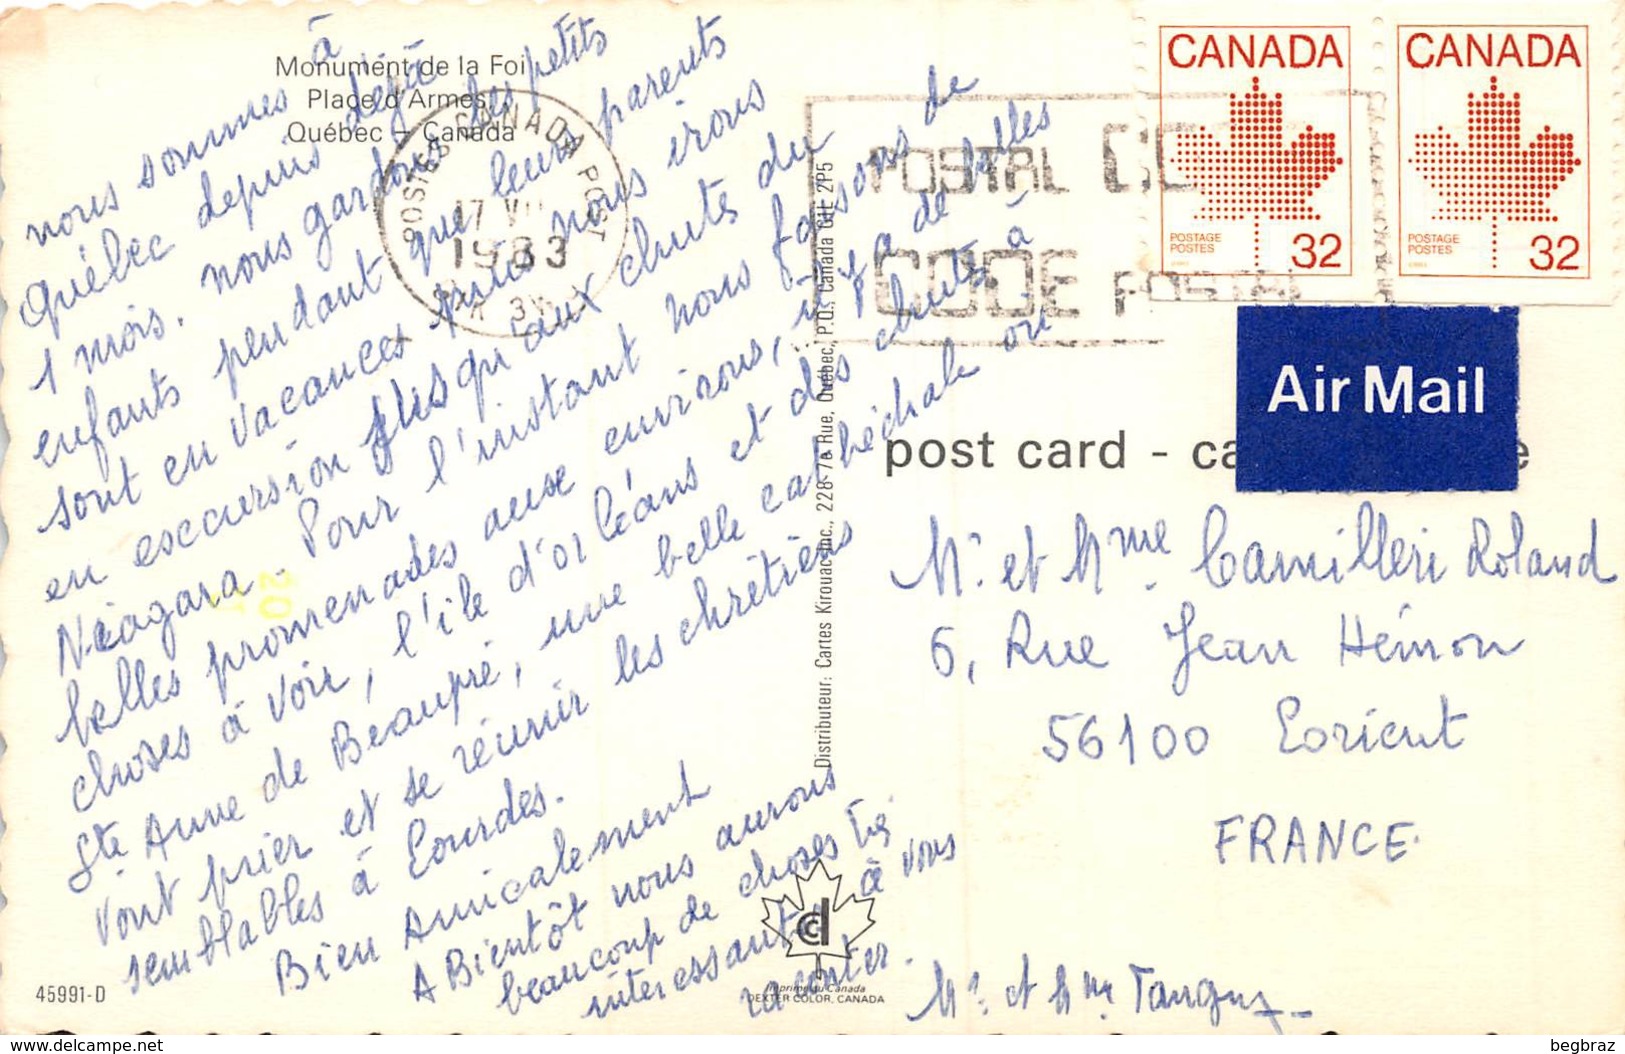 Monument de la Foi
Place d'Armes
Québec - Canada
nous sommes à
Québec depuis déjà
1 mois. nous gardons les petits
enfants pendant que leurs parents
sont en vacances nous irons
en excursion jusqu'aux chutes du
Niagara. Pour l'instant nous faisons de
belles promenades aux environs, il y a de belles
choses à voir, l'île d'orléans et des chutes à
Ste Anne de Beaupré, une belle cathédrale où
vont prier et se réunir les chrétiens
semblables à Lourdes.
Bien Amicalement
A Bientôt nous aurons
beaucoup de choses très
interessantes à vous
raconter.
Mr et Mme Tanguy
45991-D
POSTES CANADA POST
17 VII
1983
Distributeur: Cartes Kirouac Inc., 228-7e Rue, Québec, P.Q., Canada G1L 2P5
Imprimé au Canada
DEXTER COLOR, CANADA
POSTAL CO
CODE POSTAL
CANADA
POSTAGE
POSTES
32
CANADA
POSTAGE
POSTES
32
Air Mail
post card - ca e
Mr et Mme Camilleri Roland
6, Rue Jean Hémon
56100 Lorient
FRANCE.
© delcampe.net
begbraz